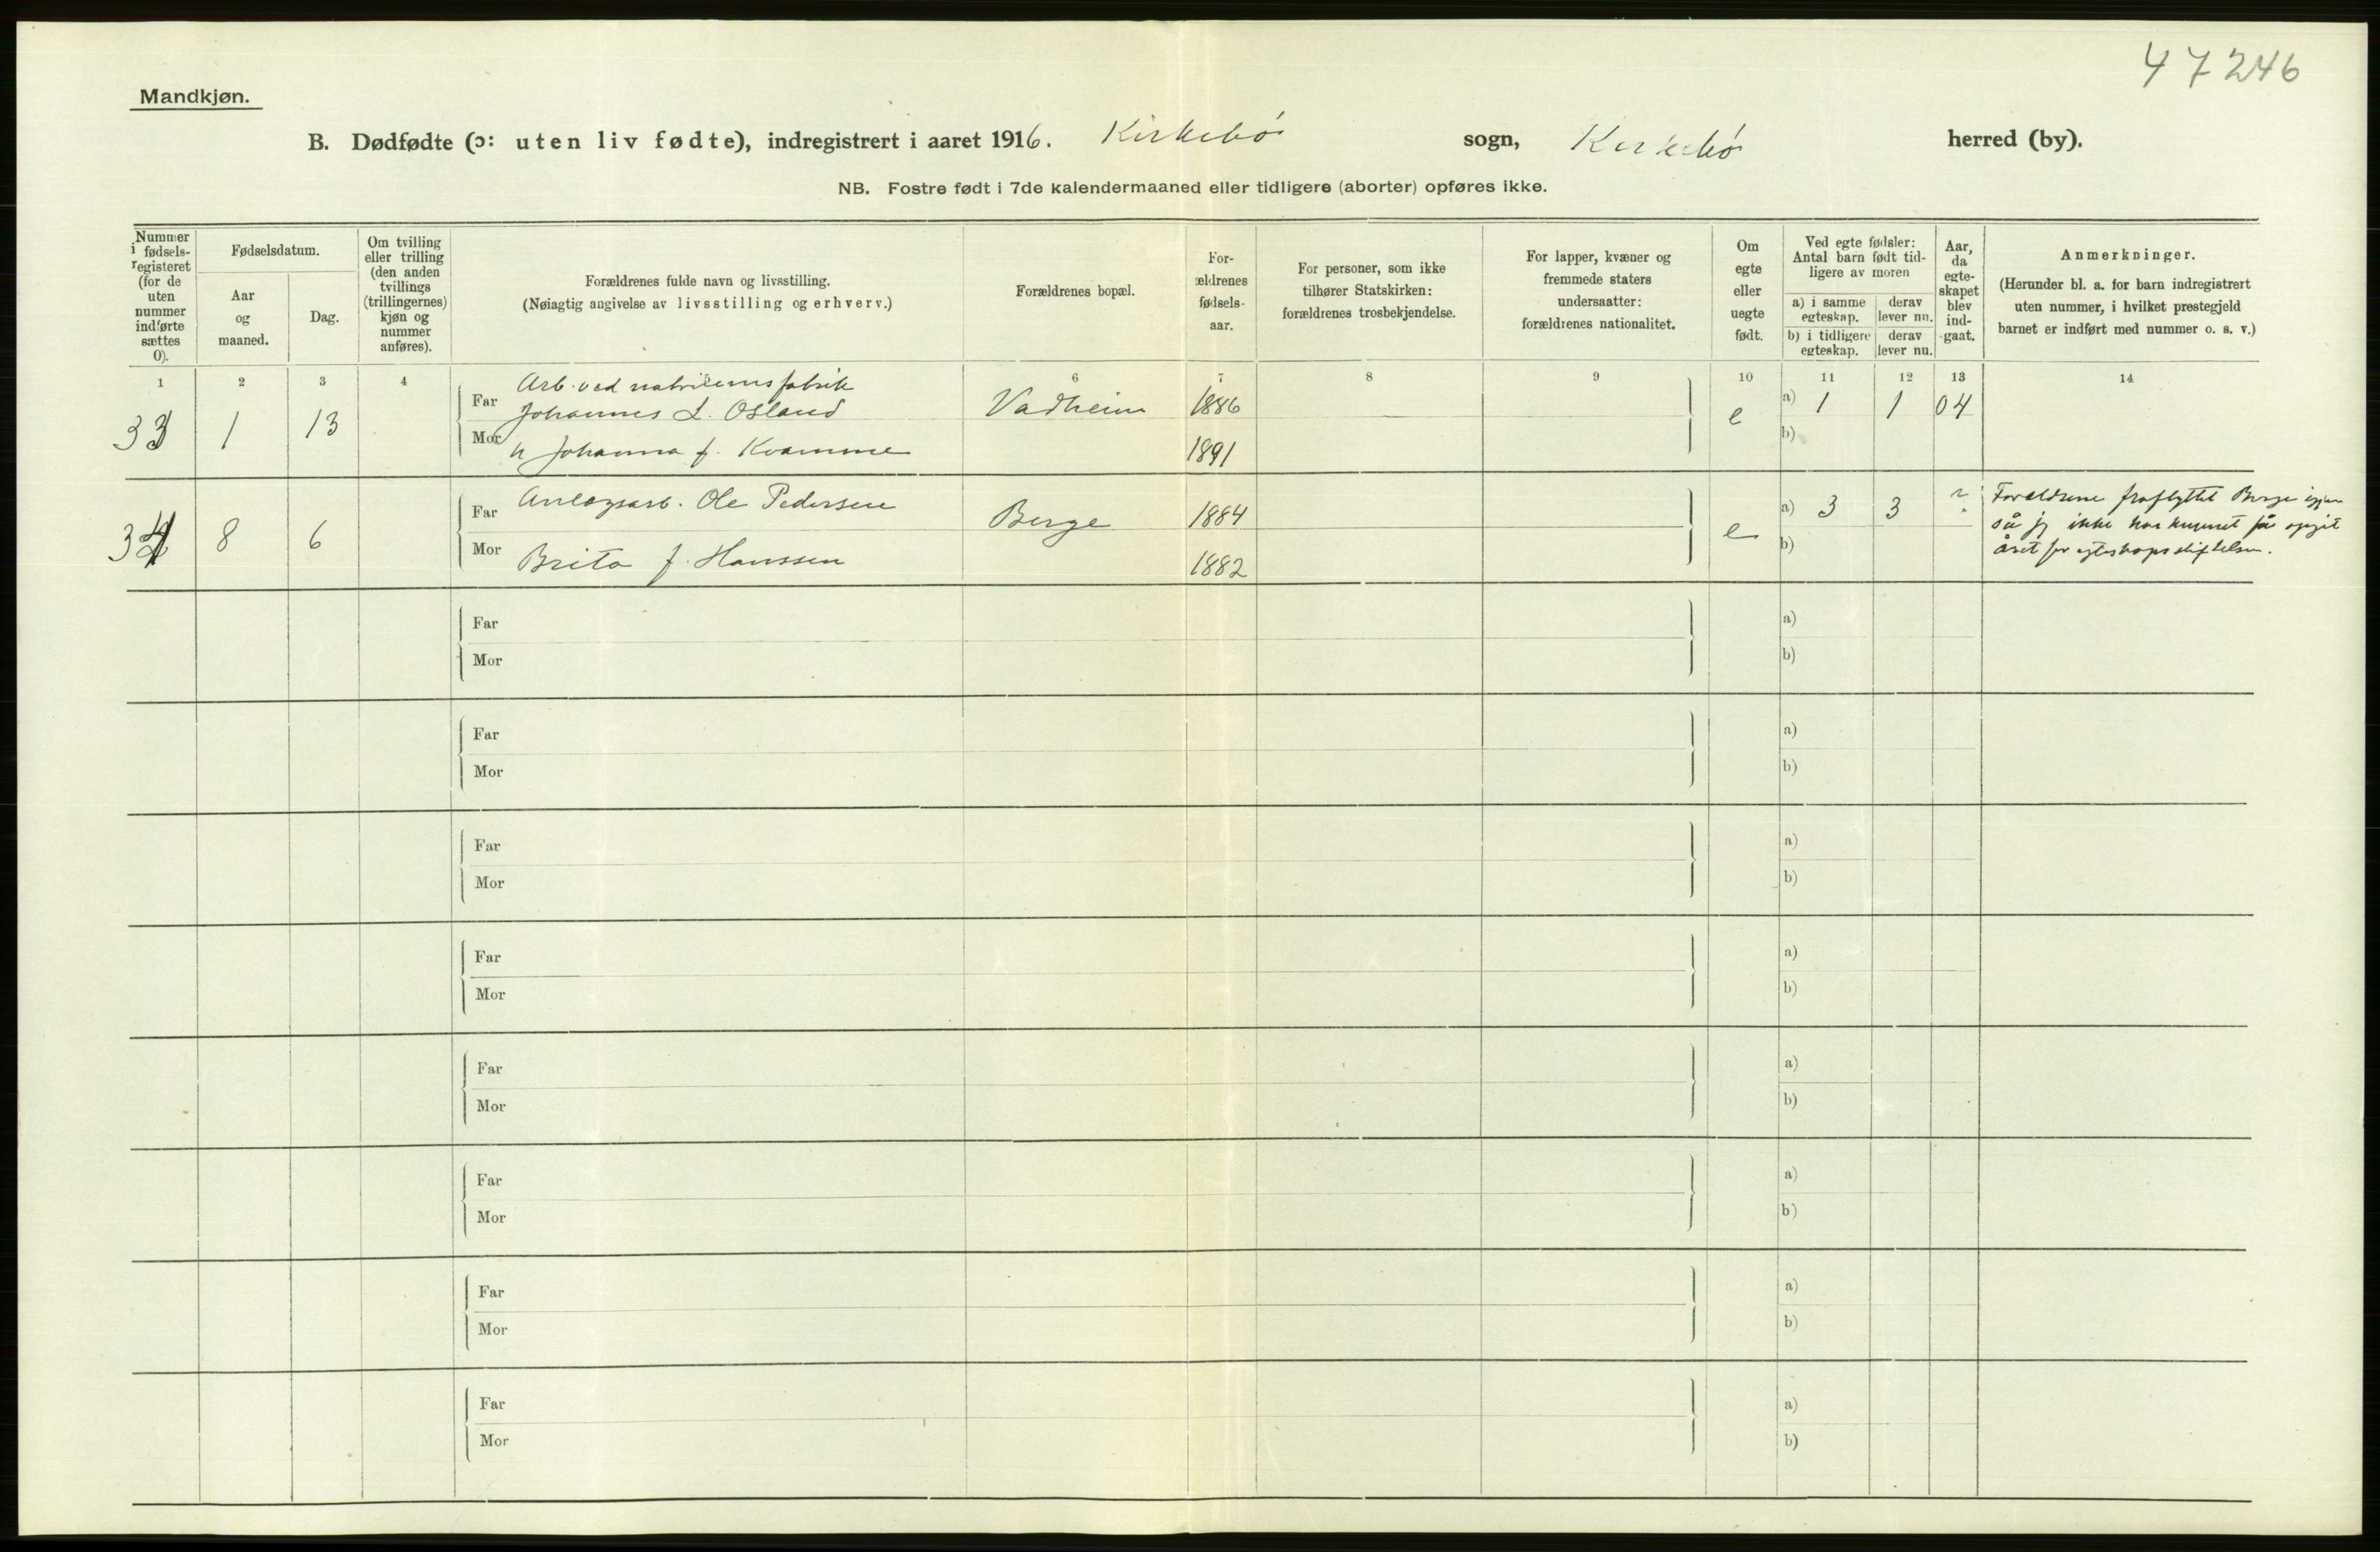 47246
Mandkjøn.
B. Dødfødte (ɔ: uten liv fødte), indregistrert i aaret 1916. Kirkebö sogn, Kirkebö herred (by).
NB. Fostre født i 7de kalendermaaned eller tidligere (aborter) opføres ikke.
Nummer
i fødsels-
registeret
(for de
uten
nummer
indførte
sættes
0).
Fødselsdatum.
Aar
og
maaned.
Dag.
Om tvilling
eller trilling
(den anden
tvillings
(trillingernes)
kjøn og
nummer
anføres).
Forældrenes fulde navn og livsstilling.
(Nøiagtig angivelse av livsstilling og erhverv.)
Forældrenes bopæl.
For-
ældrenes
fødsels-
aar.
For personer, som ikke
tilhører Statskirken:
forældrenes trosbekjendelse.
For lapper, kvæner og
fremmede staters
undersaatter:
forældrenes nationalitet.
Om
egte
eller
uegte
født.
Ved egte fødsler:
Antal barn født tid-
ligere av moren
a) i samme
egteskap.
derav
lever nu.
b) i tidligere
egteskap.
derav
lever nu.
Aar,
da
egte-
skapet
blev
ind-
gaat.
Anmerkninger.
(Herunder bl. a. for barn indregistrert
uten nummer, i hvilket prestegjeld
barnet er indført med nummer o. s. v.)
1 2 3 4 6 7 8 9 10 11 12 13 14
Arb. ved natriumsfabrik
33 1 13 Far Johannes L. Osland Vadheim 1886 e a) 1 1 04
Mor h Johanna f. Kvamme 1891 b)
34 8 6 Far Anlægsarb. Ole Pedersen Berge 1884 e a) 3 3 ? Forældrene fraflyttet Berge igjen
så jeg ikke har kunnet få opgit
Mor Brita f. Hanssen 1882 b) året for egteskapsstiftelsen.
Far a)
Mor b)
Far a)
Mor b)
Far a)
Mor b)
Far a)
Mor b)
Far a)
Mor b)
Far a)
Mor b)
Far a)
Mor b)
Far a)
Mor b)